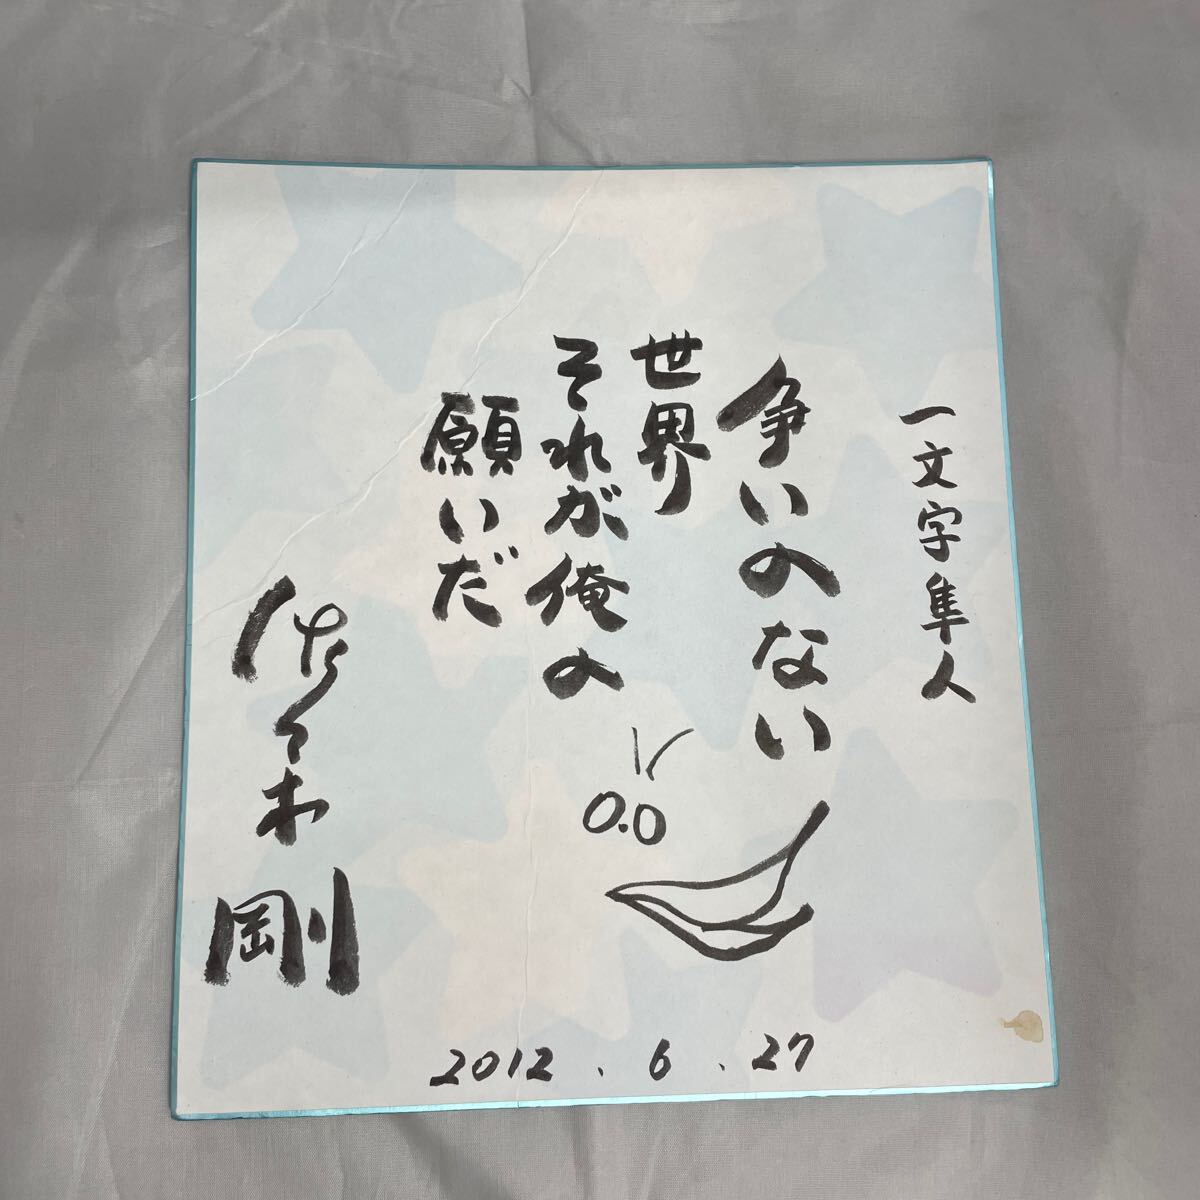 一文字隼人
争いのない
世界
それが俺の
願いだ
佐々木剛
V
0.0
2012.6.27